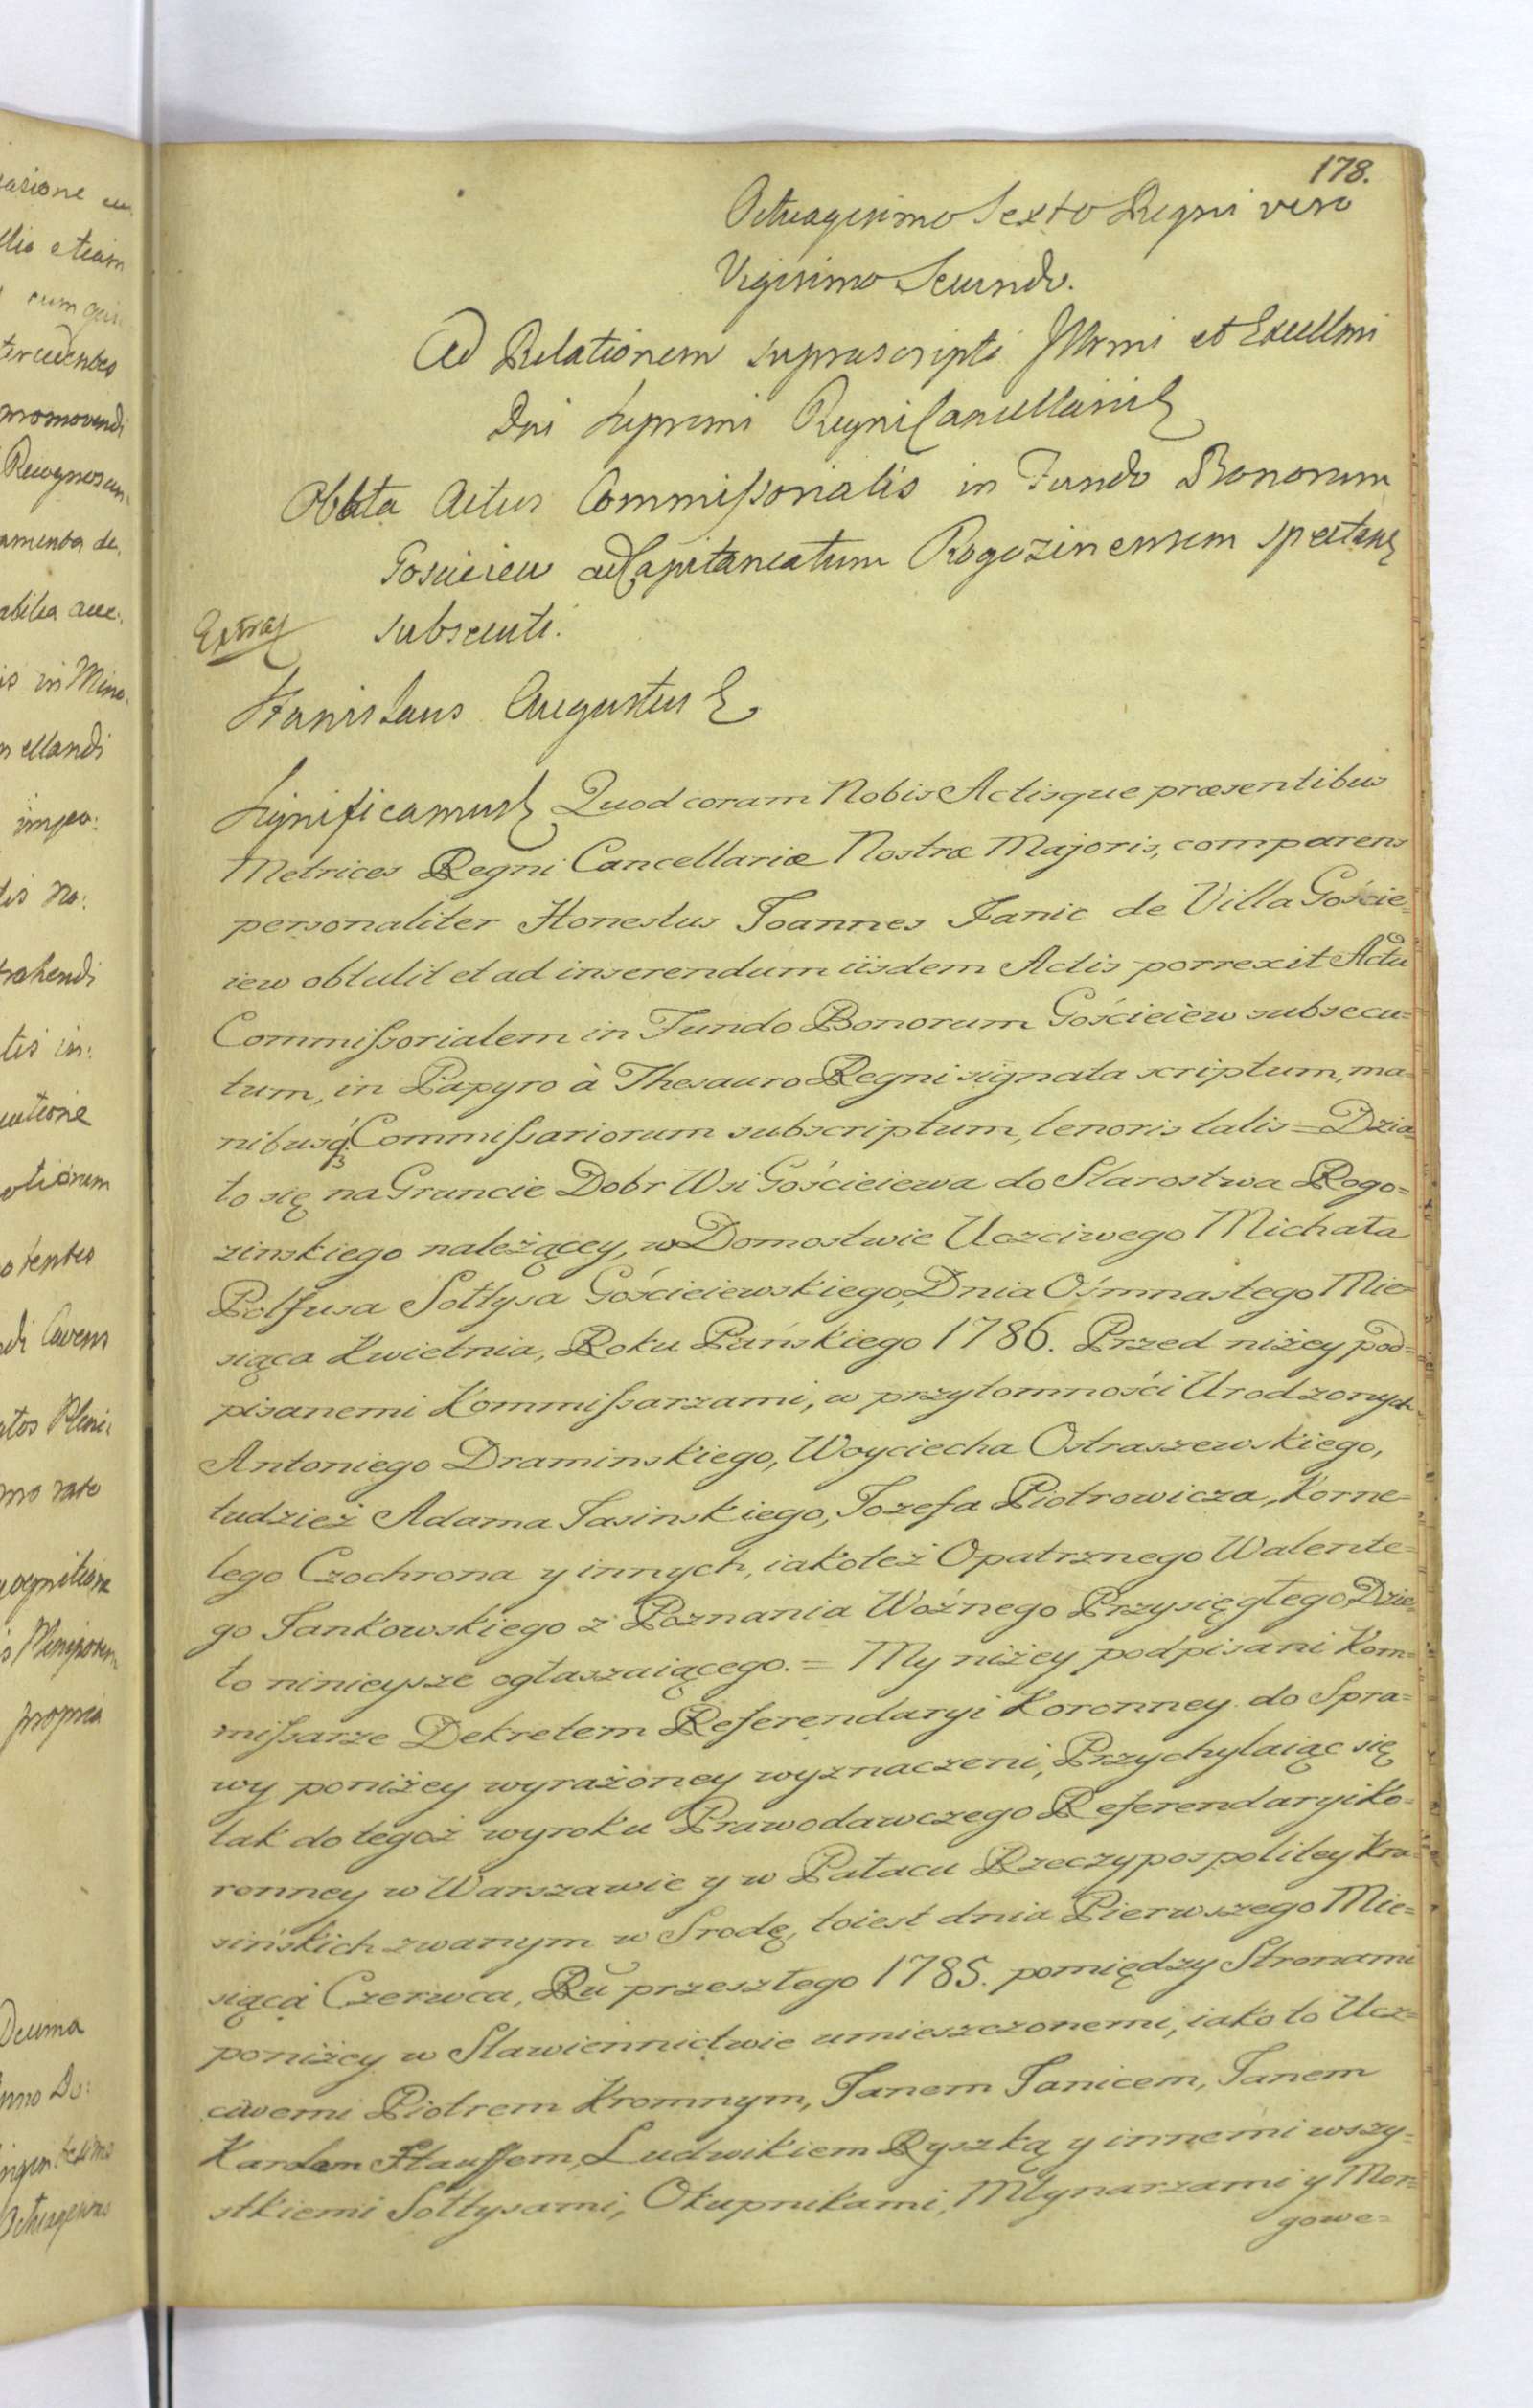 178.
Octuagesimo Sexto Regni vero
Vigesimo Secundo.
Ad Relationem suprascripti Illrmi et Excellmi
Dni Supremi Regni Cancellarii
Oblata Actus Commissorialis in Fundo Bonorum
Gościeiew ad Capitaneatum Rogozinensem spectans
subsecuti.
Extrad
Stanislaus Augustus
Significamus Quod coram Nobis Actisque præsentibus
Metrices Regni Cancellariæ Nostræ Majoris, comparens
personaliter Honestus Joannes Janic de Villa Goście=
iew obtulit et ad inserendum iisdem Actis porrexit Actu
Commissorialem in Fundo Bonorum Gościeiew subsecu=
tum, in Papyro à Thesauro Regni signata scriptum, ma=
nibusq3 Commissariorum subscriptum, tenoris talis = Dzia=
ło się na Gruncie Dobr Wsi Gościeiewa do Starostwa Rogo=
zinskiego należącey, w Domostwie Uczciwego Michała
Polfusa Sołtysa Gościeiewskiego, Dnia Ośmnastego Mie=
siąca Kwietnia, Roku Pańskiego 1786. Przed niżey pod=
pisanemi Kommissarzami, w przytomności Urodzonych
Antoniego Draminskiego, Woyciecha Ostraszewskiego,
tudzież Adama Jasinskiego, Jozefa Piotrowicza, Korne=
lego Czochrona y innych, iakoteż Opatrznego Walente=
go Jankowskiego z Poznania Woźnego Przysięgłego Dzie=
ło ninieysze ogłaszaiącego. = My niżey podpisani Kom=
missarze Dekretem Referendaryi Koronney do Spra=
wy poniżey wyrażoney wyznaczeni, Przychylaiąc się
tak do tegoż wyroku Prawodawczego Referendaryi Ko=
ronney w Warszawie y w Pałacu Rzeczypospolitey Kra=
sińskich zwanym w Srodę, toiest dnia Pierwszego Mie=
siąca Czerwca, Ru przeszłego 1785. pomiędzy Stronami
poniżey w Stawiennictwie umieszczonemi, iako to Ucz=
ciwemi Piotrem Kromnym, Janem Janicem, Janem
Karolem Stauffem, Ludwikiem Ryszką y innemi wszy=
stkiemi Sołtysami, Okupnikami, Młynarzami y Mor=
gowe=